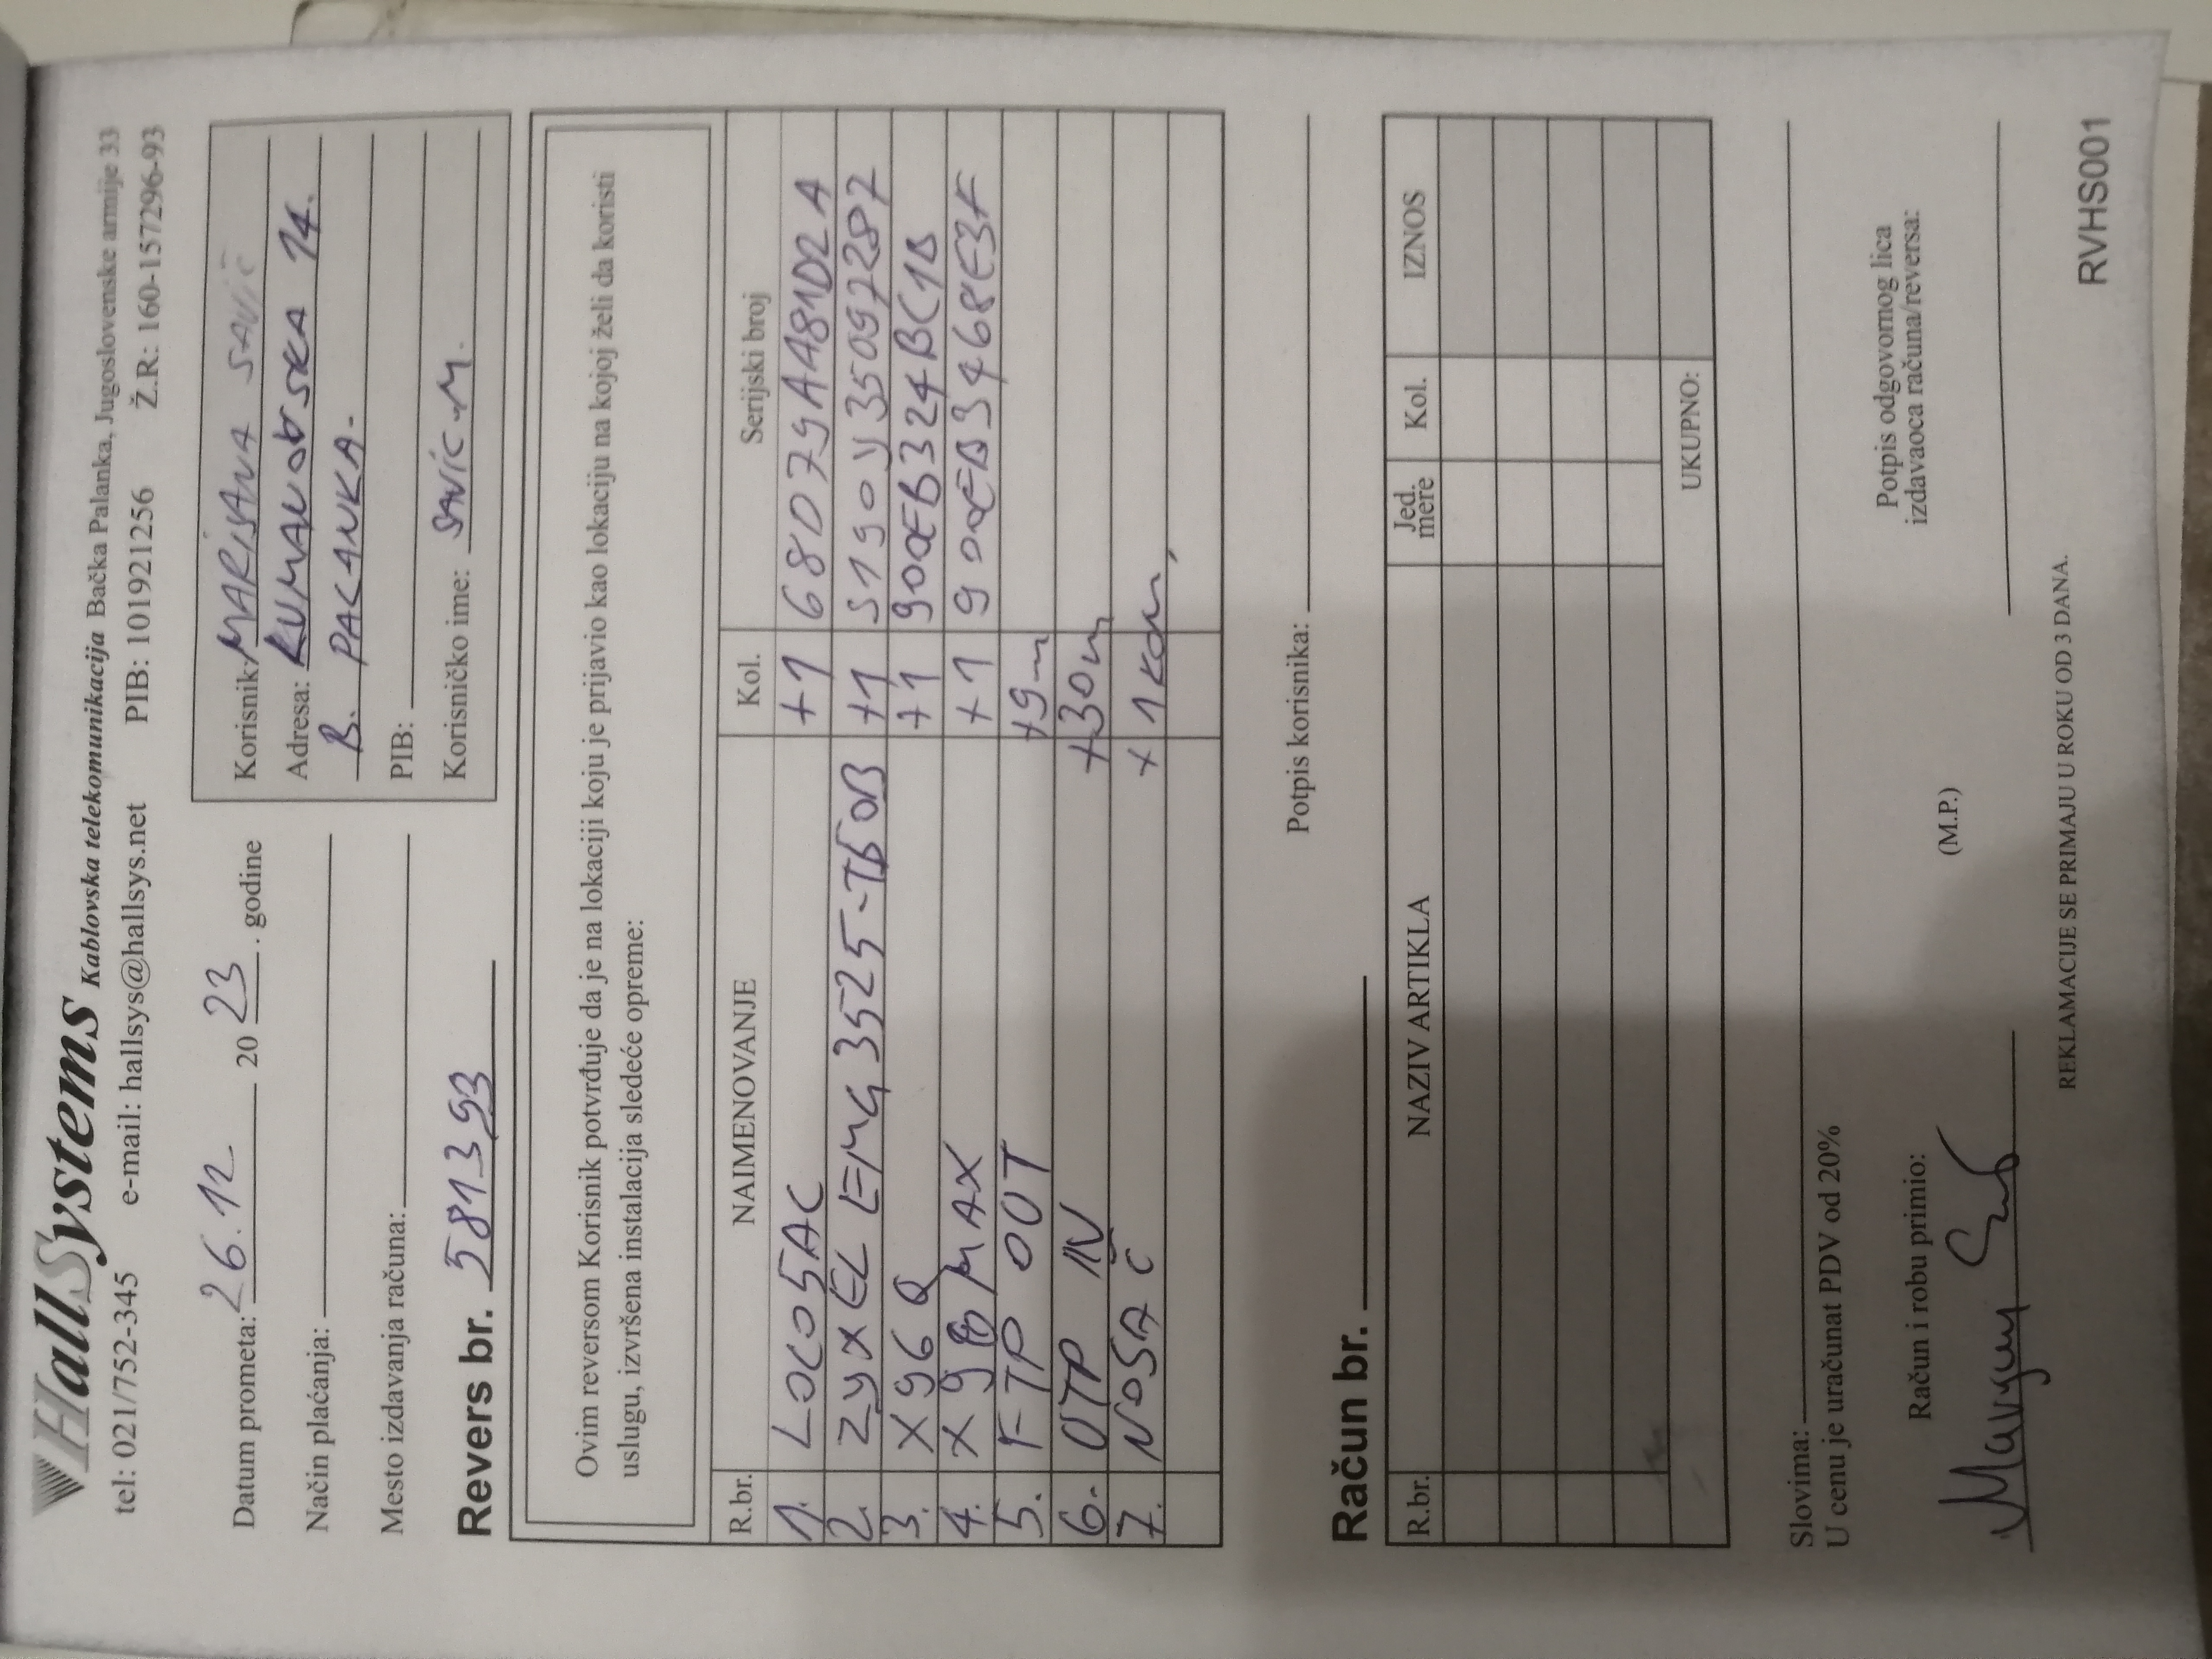 HallSystems Kablovska telekomunikacija Bačka Palanka, Jugoslovenske armije 33
tel: 021/752-345 e-mail: hallsys@hallsys.net PIB: 101921256 Ž.R: 160-157296-93
Datum prometa: 26.12 2023. godine
Način plaćanja:
Mesto izdavanja računa:
Revers br. 581393
Korisnik: MARIJANA SAVIĆ
Adresa: KUMANOVSKA 14.
B. PALANKA.
PIB:
Korisničko ime: SAVIC.M.
Ovim reversom Korisnik potvrđuje da je na lokaciji koju je prijavio kao lokaciju na kojoj želi da koristi
uslugu, izvršena instalacija sledeće opreme:
R.br. NAIMENOVANJE Kol. Serijski broj
1. LOCO5AC +1 68D79A481D2A
2. ZYXEL EMG3525-T50B +1 S190Y35097287
3. X96Q +1
4. MAX +1
5. FTP OUT +9m
6. UTP IN +30m
7. NOSAČ + 1 kom,
Potpis korisnika:
Račun br.
R.br. NAZIV ARTIKLA Jed. mere Kol. IZNOS
UKUPNO:
Slovima:
U cenu je uračunat PDV od 20%
Račun i robu primio:
(M.P.)
Potpis odgovornog lica
izdavaoca računa/reversa:
REKLAMACIJE SE PRIMAJU U ROKU OD 3 DANA.
RVHS001